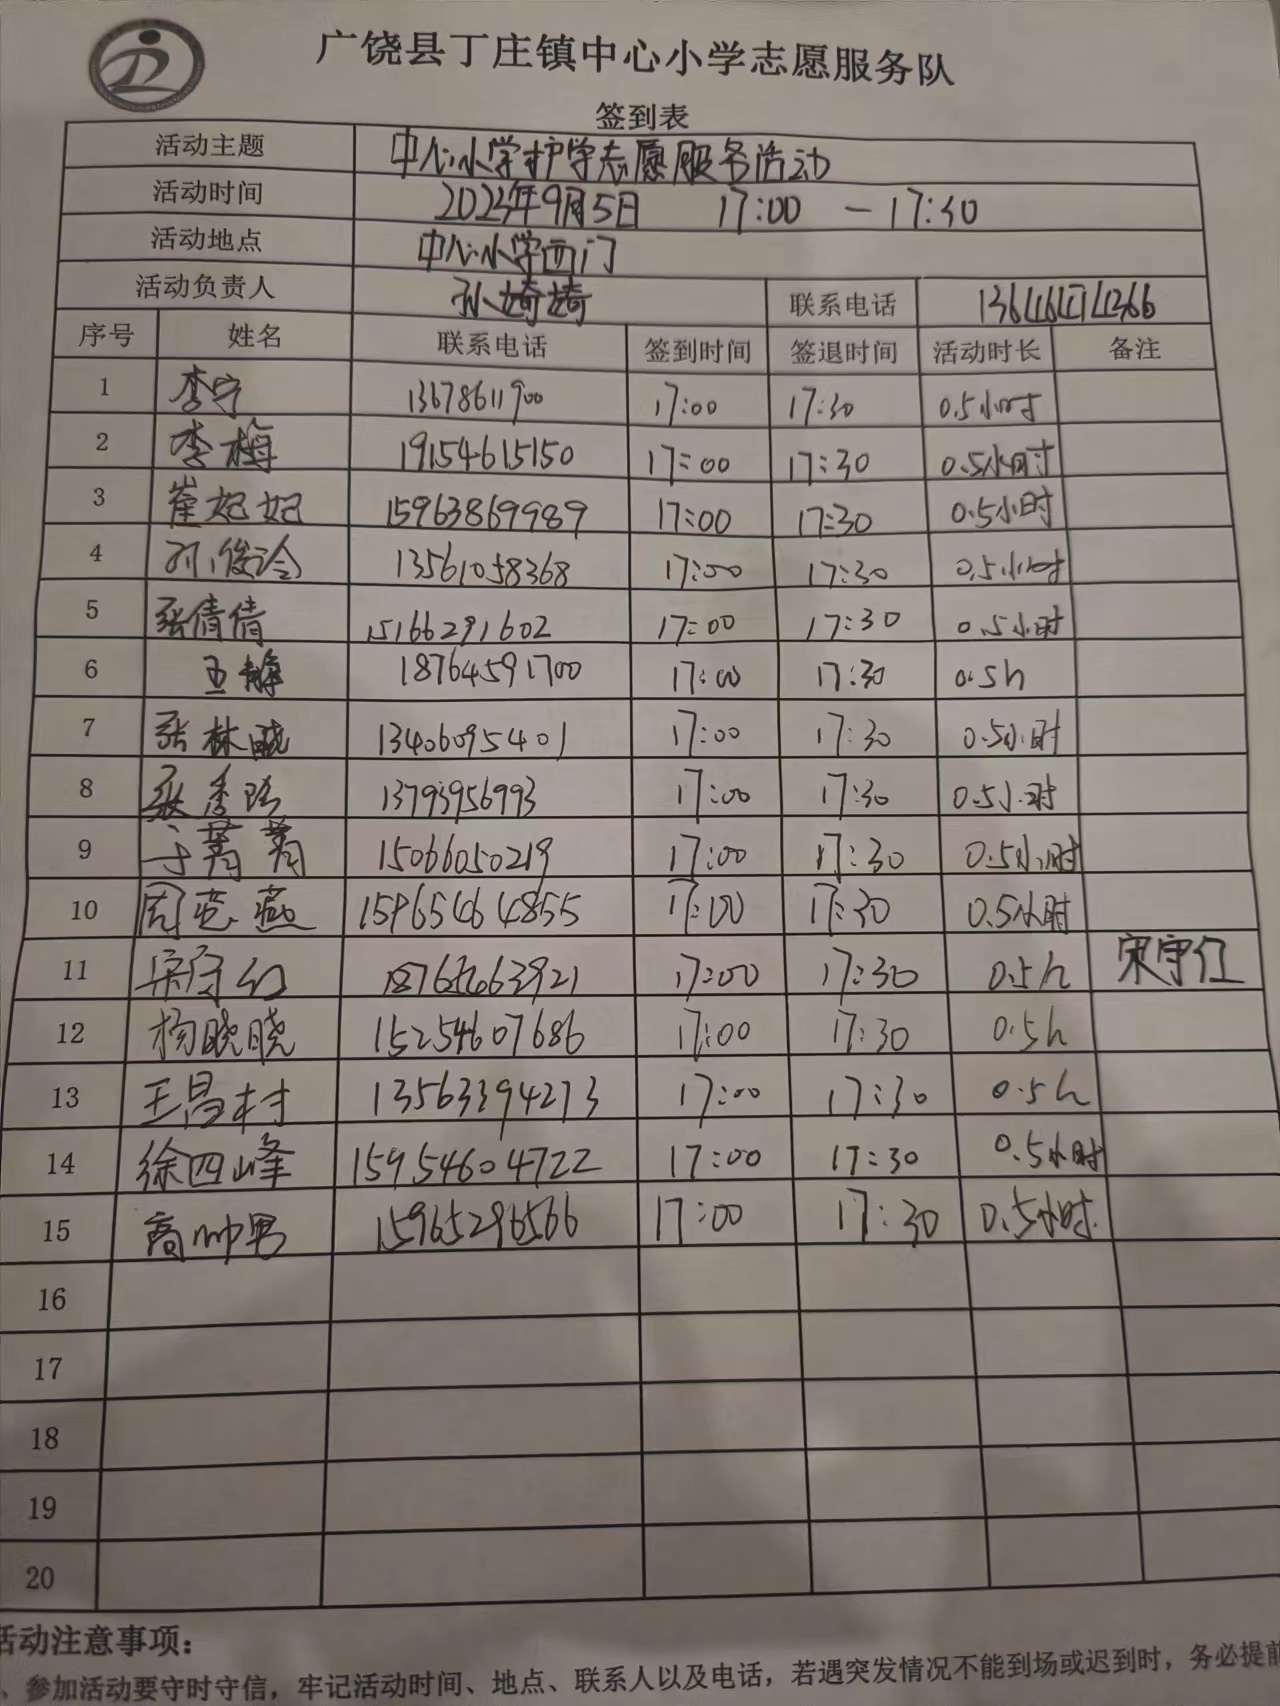 广饶县丁庄镇中心小学志愿服务队
签到表
活动主题 中心小学护学志愿服务活动
活动时间 2023年9月5日 17:00 — 17:30
活动地点 中心小学西门
活动负责人 孙婷婷 联系电话 13646474366
序号 姓名 联系电话 签到时间 签退时间 活动时长 备注
1 李宁 13678611900 17:00 17:30 0.5小时
2 李梅 19154615150 17:00 17:30 0.5小时
3 崔妃妃 15963869989 17:00 17:30 0.5小时
4 孙俊泠 13561058368 17:00 17:30 0.5小时
5 张倩倩 15166291602 17:00 17:30 0.5小时
6 王静 18764591700 17:00 17:30 0.5h
7 张林晓 13406095401 17:00 17:30 0.5小时
8 张秀 13793956993 17:00 17:30 0.5小时
9 于菁菁 15066050219 17:00 17:30 0.5小时
10 周燕 15965464855 17:00 17:30 0.5小时
11 宋守红 17:00 17:30 0.5h 宋守红
12 杨晓晓 15254607686 17:00 17:30 0.5h
13 王昌村 13563394273 17:00 17:30 0.5h
14 徐四峰 15954604722 17:00 17:30 0.5小时
15 商帅男 15965296566 17:00 17:30 0.5小时
16
17
18
19
20
活动注意事项:
、参加活动要守时守信，牢记活动时间、地点、联系人以及电话，若遇突发情况不能到场或迟到时，务必提前